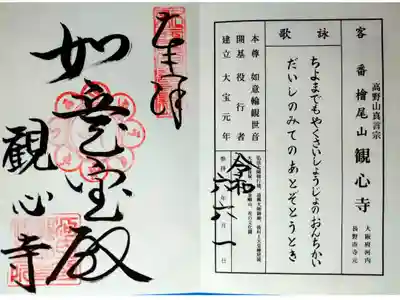 奉拝
如意宝殿
観心寺
詠歌
客番
高野山真言宗
檜尾山 観心寺
大阪府河内
長野市寺元
ちよまでもやくさいしょうじょのおんちかい
だいしのみてのあとぞとうとき
本尊 如意輪観世音
開基 役行者
建立 大宝元年
令和六年六月一日